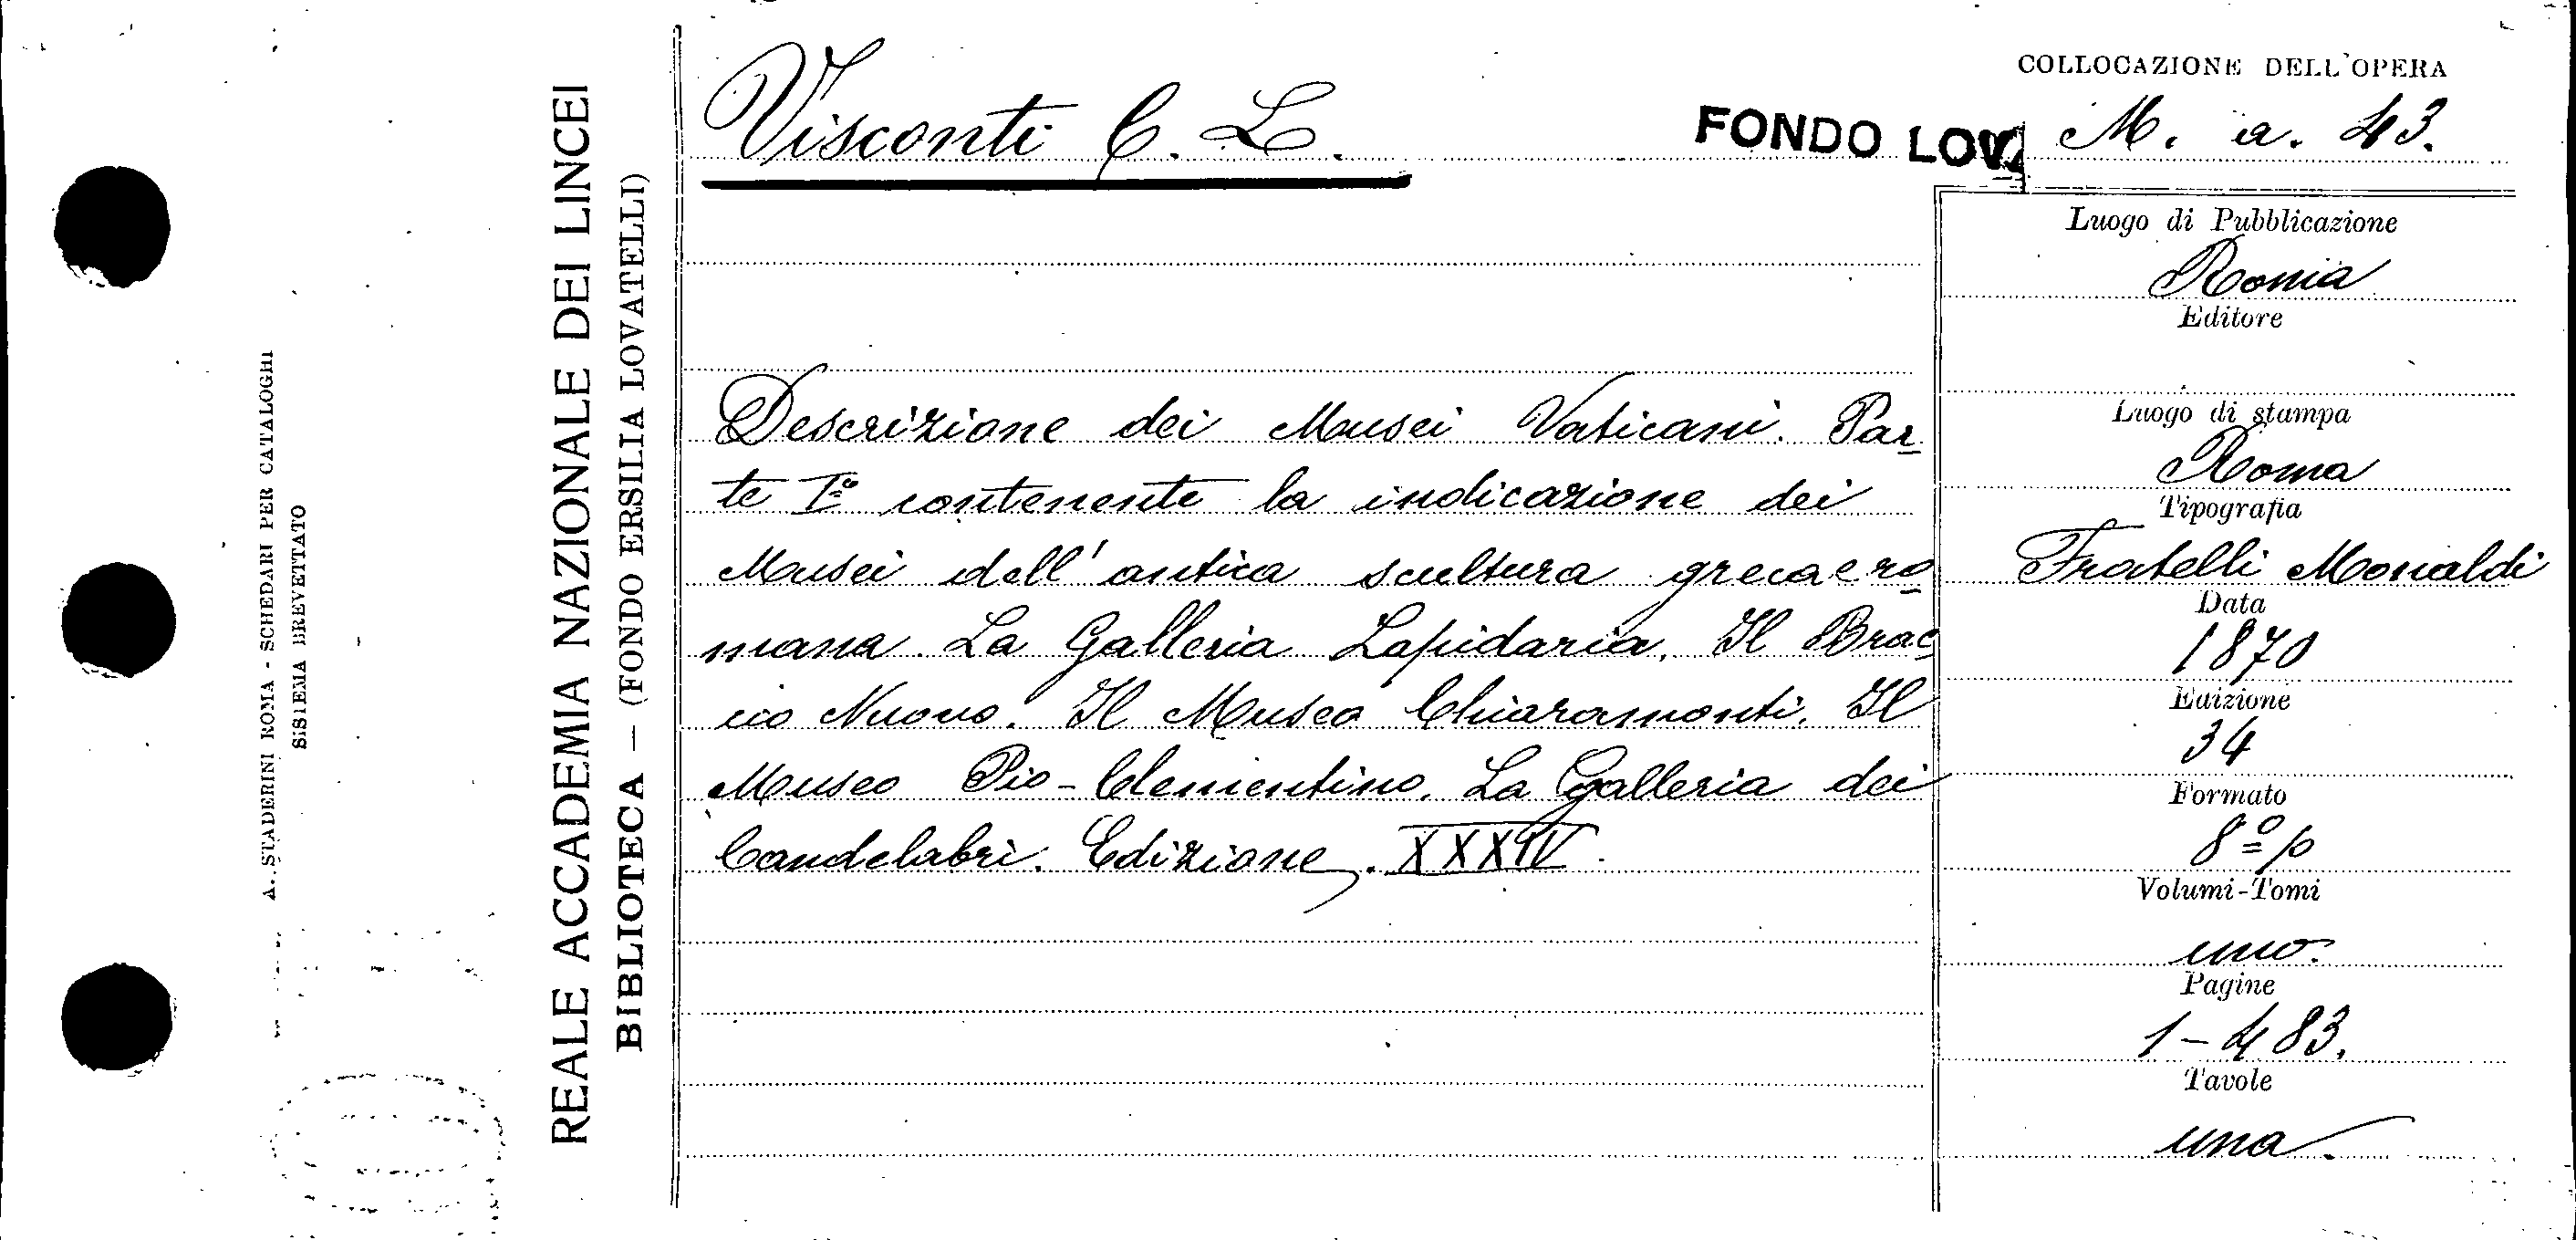 A. STADERINI ROMA - SCHEDARI PER CATALOGHI
SISTEMA BREVETTATO
REALE ACCADEMIA NAZIONALE DEI LINCEI
BIBLIOTECA — (FONDO ERSILIA LOVATELLI)
Visconti C. L.
FONDO LOV.
COLLOCAZIONE DELL'OPERA
M. a. 43.
Descrizione dei Musei Vaticani. Par
te Iª contenente la indicazione dei
Musei dell'antica scultura greca e ro
mana. La Galleria Lapidaria. Il Brac
cio Nuovo. Il Museo Chiaramonti. Il
Museo Pio-Clementino. La Galleria dei
Candelabri. Edizione. XXXIV.
Luogo di Pubblicazione
Roma
Editore
Luogo di stampa
Roma
Tipografia
Fratelli Monaldi
Data
1870
Edizione
34
Formato
8º p
Volumi-Tomi
uno.
Pagine
1-483.
Tavole
una.